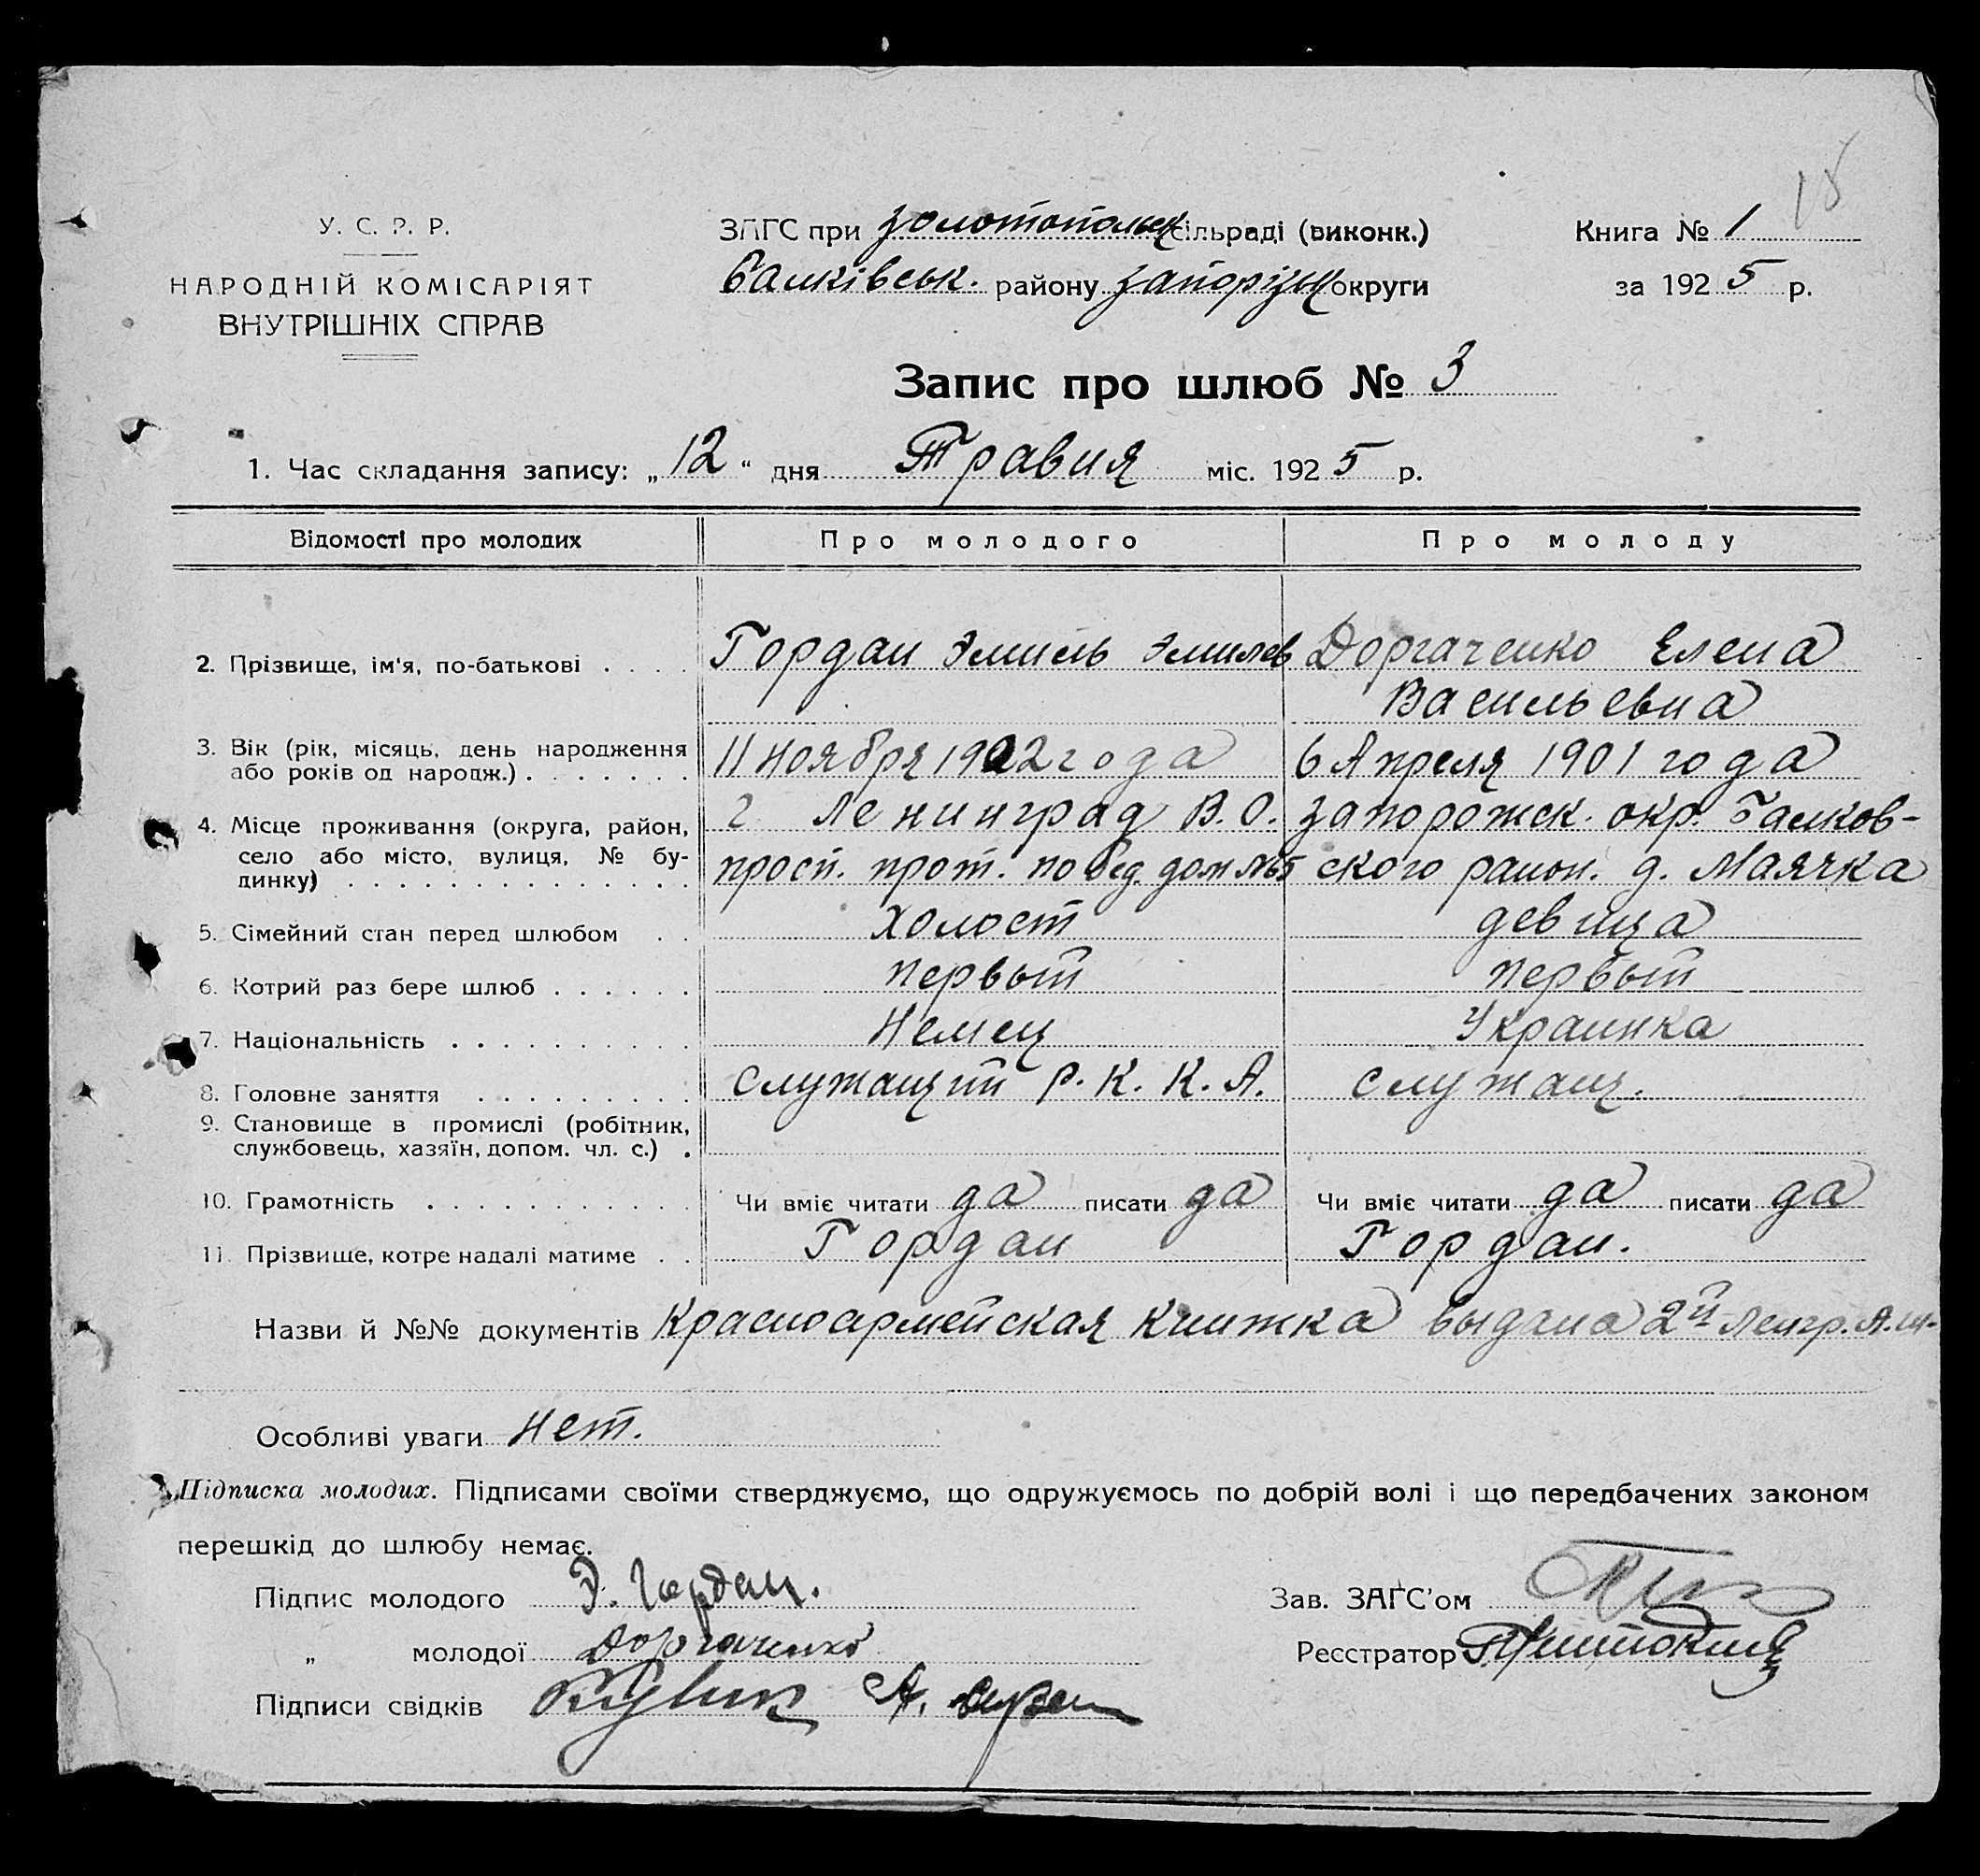 15
У. С. Р. Р.
НАРОДНІЙ КОМІСАРІЯТ
ВНУТРІШНІХ СПРАВ
ЗАГС при Золотопольск сільраді (виконк.)
Балківськ. району Запорізьк округи
Книга № 1
за 1925 р.
Запис про шлюб № 3
1. Час складання запису: „12“ дня Травня міс. 1925 р.
Відомості про молодих
Про молодого
Про молоду
2. Прізвище, ім'я, по-батькові . . . .
Гордан Эмиль Эмилев
Доргаченко Елена
Васильевна
3. Вік (рік, місяць, день народження
або років од народж.) . . . . . . .
11 ноября 1902 года
6 Апреля 1901 года
4. Місце проживання (округа, район,
село або місто, вулиця, № бу-
динку) . . . . . . . . . . . . . .
г Ленинград В. О.
просп. прот. побед. дом №5
Запорожск. окр. Балков-
ского район. д. Маячка
5. Сімейний стан перед шлюбом . .
холост
девица
6. Котрий раз бере шлюб . . . . . .
первый
первый
7. Національність . . . . . . . . . .
Немец
Украинка
8. Головне заняття . . . . . . . . .
служащий Р. К. К. А.
служащ.
9. Становище в промислі (робітник,
службовець, хазяїн, допом. чл. с.) .
10. Грамотність . . . . . . . . . . .
Чи вміє читати да писати да
Чи вміє читати да писати да
11. Прізвище, котре надалі матиме . .
Гордан
Гордан.
Назви й №№ документів Красноармейская книжка выдана 2й Ленгр. А. ш.
Особливі уваги нет.
Підписка молодих. Підписами своїми стверджуємо, що одружуємось по добрій волі і що передбачених законом
перешкід до шлюбу немає.
Підпис молодого Э. Гордан.
„ молодої Доргаченко
Підписи свідків
Зав. ЗАГС'ом
Реєстратор